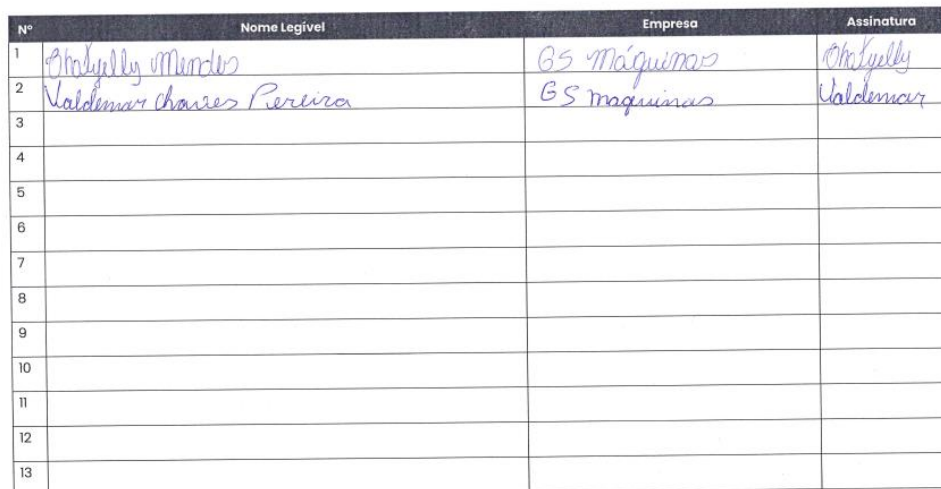 Nº Nome Legível Empresa Assinatura
1 Thatyelly Mendes GS Máquinas Thatyelly
2 Valdemar Chaves Pereira GS maquinas Valdemar
3
4
5
6
7
8
9
10
11
12
13